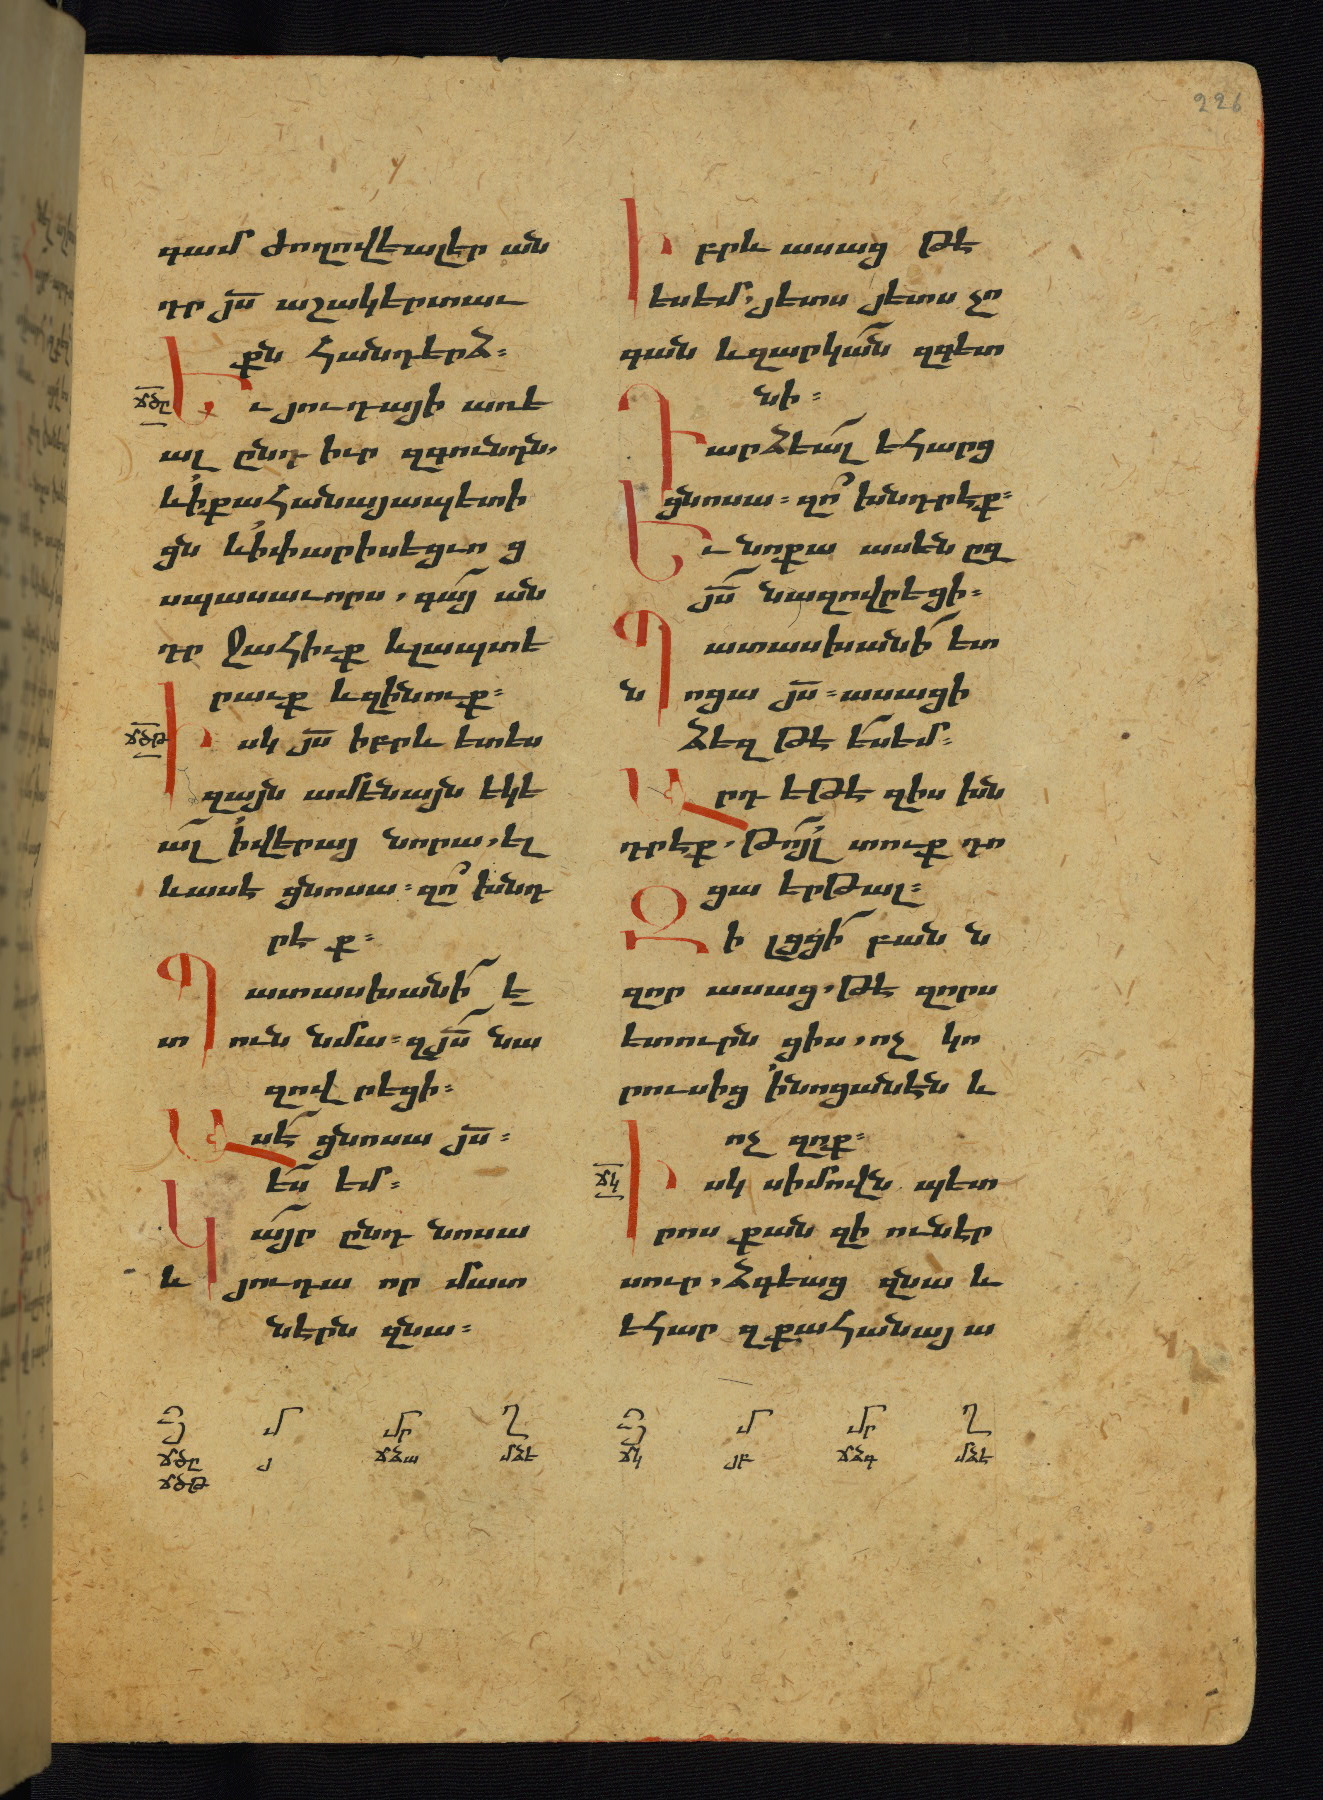 226
գամ ժողովեալեր ան
դր յս աշակերտաւ
քն հանդերձ։
ճծը
Եւ յուդայի առե
ալ ընդ իւր զգունդն,
և ի քահանայապետի
ցն և ի փարիսեցւո ց
սպասաւորս, գայ ան
դր ջահիւք և լապտե
րաւք և զինուք։
ճծթ
Իսկ յս իբրև ետես
զայն ամենայն եկե
ալ ի վերայ նորա, ել
և ասե ցնոսա։ զո խնդ
րէ ք։
Պատասխանի ե
տ ուն նմա։ զյս նա
զով րեցի։
Ասե ցնոսա յս։
ես եմ։
Կայր ընդ նոսա
և յուդա որ մատ
ներն զնա։
Իբրև ասաց թէ
ես եմ, յետս յետս չո
գան և զարկան զգետ
նի։
Դարձեալ եհարց
ցնոսա։ զո խնդրէք։
Եւ նոքա ասեն ըզ
յս նազովրեցի։
Պատասխանի ետ
ն ոցա յս։ ասացի
ձեզ թէ ես եմ։
Արդ եթէ զիս խն
դրէք, թոյլ տուք դո
ցա երթալ։
Զի լցցի բան ն
զոր ասաց, թէ զորս
ետուրն ցիս, ոչ կո
րուսից ի նոցանէն և
ոչ զոք։
ճկ
Իսկ սիմովն պետ
րոս քան զի ունէր
սուր, ձգեաց զնա և
եհար զ քահանայ ա
Յ մ մր Ղ Յ մ մր Ղ
ճծը յ ճձա մձե ճկ յբ ճձգ մձե
ճծթ